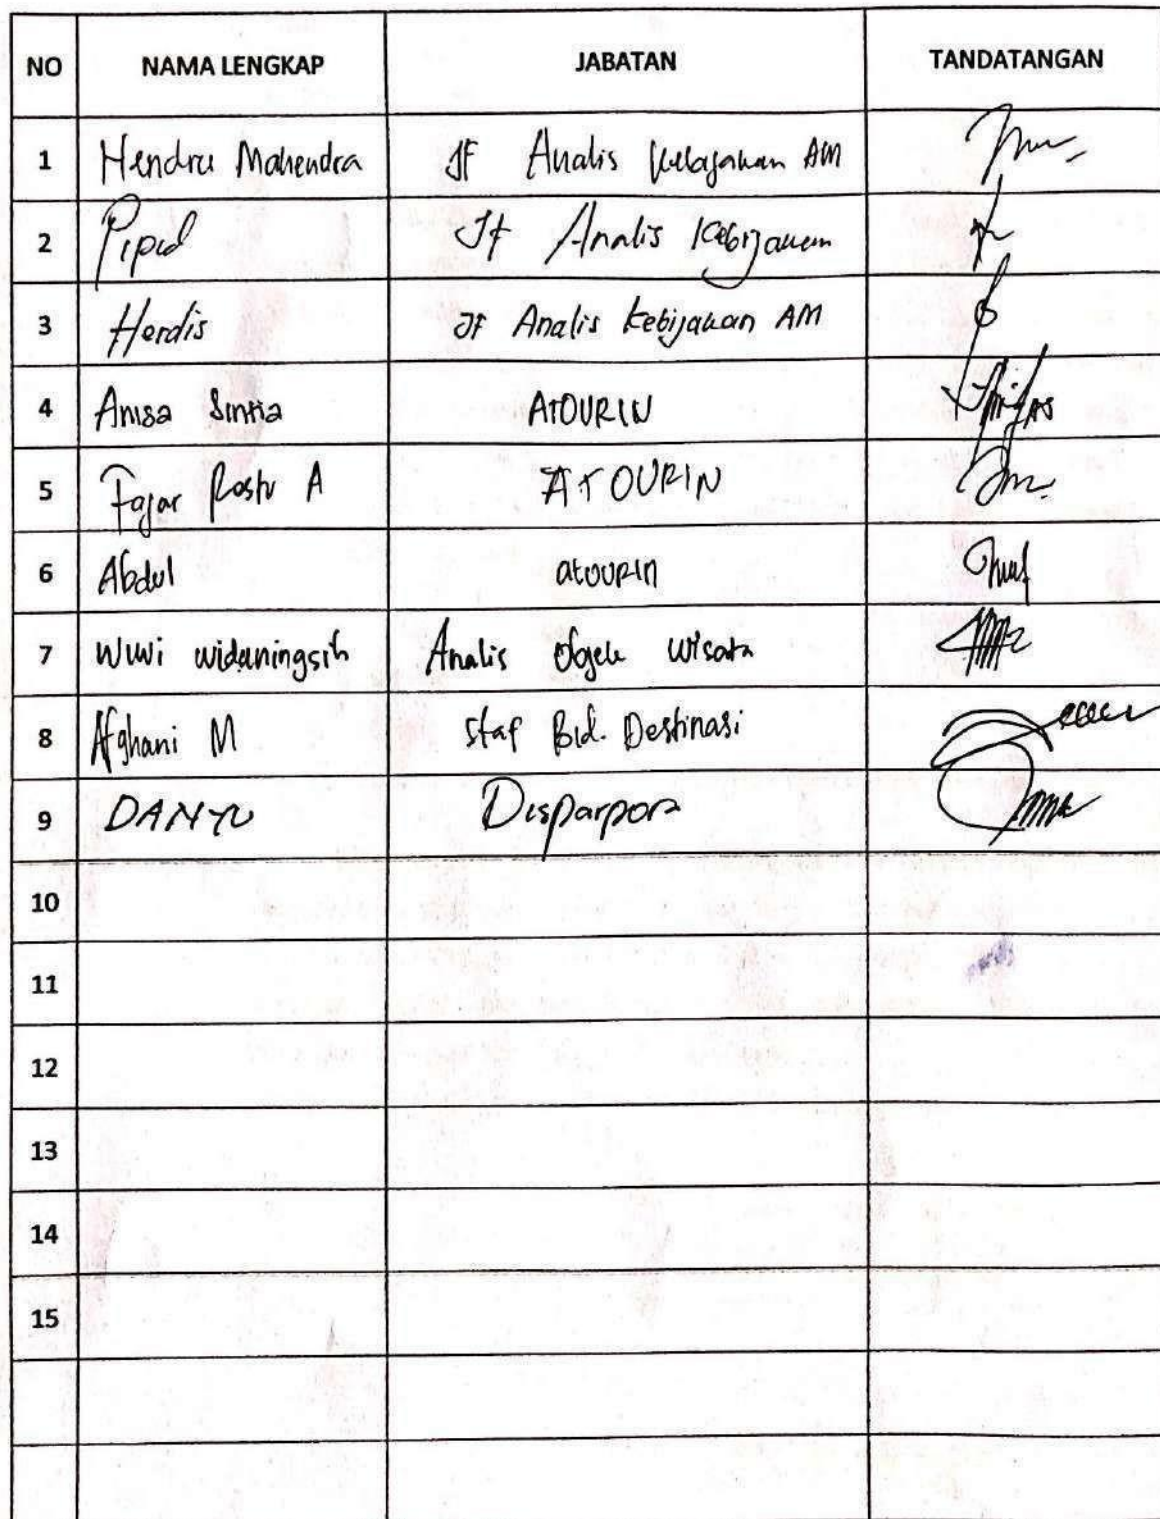 NO NAMA LENGKAP JABATAN TANDATANGAN
1 Hendra Mahendra JF Analis Kebijakan AM
2 JF Analis Kebijakan
3 Herdis JF Analis Kebijakan AM
4 Anisa Sintia ATOURIN
5 Fajar A ATOURIN
6 Abdul atourin
7 Wiwi widaningsih Analis Objek Wisata
8 Afghani M Staf Bid. Destinasi
9 Disparpora
10
11
12
13
14
15